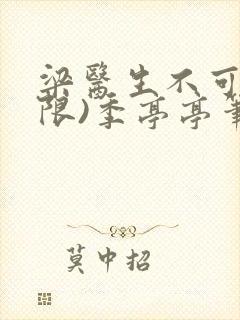 梁医生不可
限)季亭亭筆
莫中招